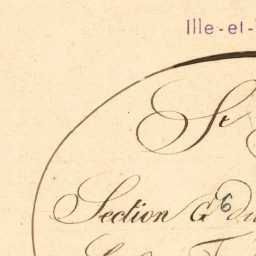 Ille-et-
St
Section G6 du